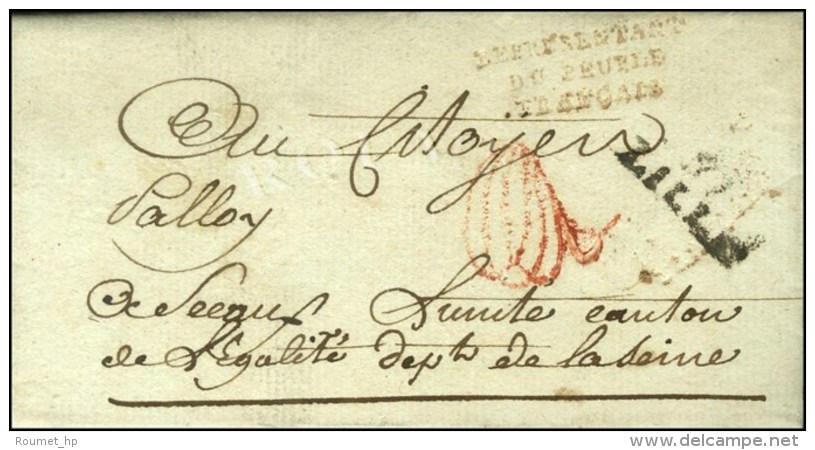 REPRESENTANT
DU PEUPLE
FRANÇAIS
Au Citoyen
LILLE
Palloy
a Sceaux L'unité canton
de L'Egalité dept de la Seine
Roumet_hp
©delcampe.net